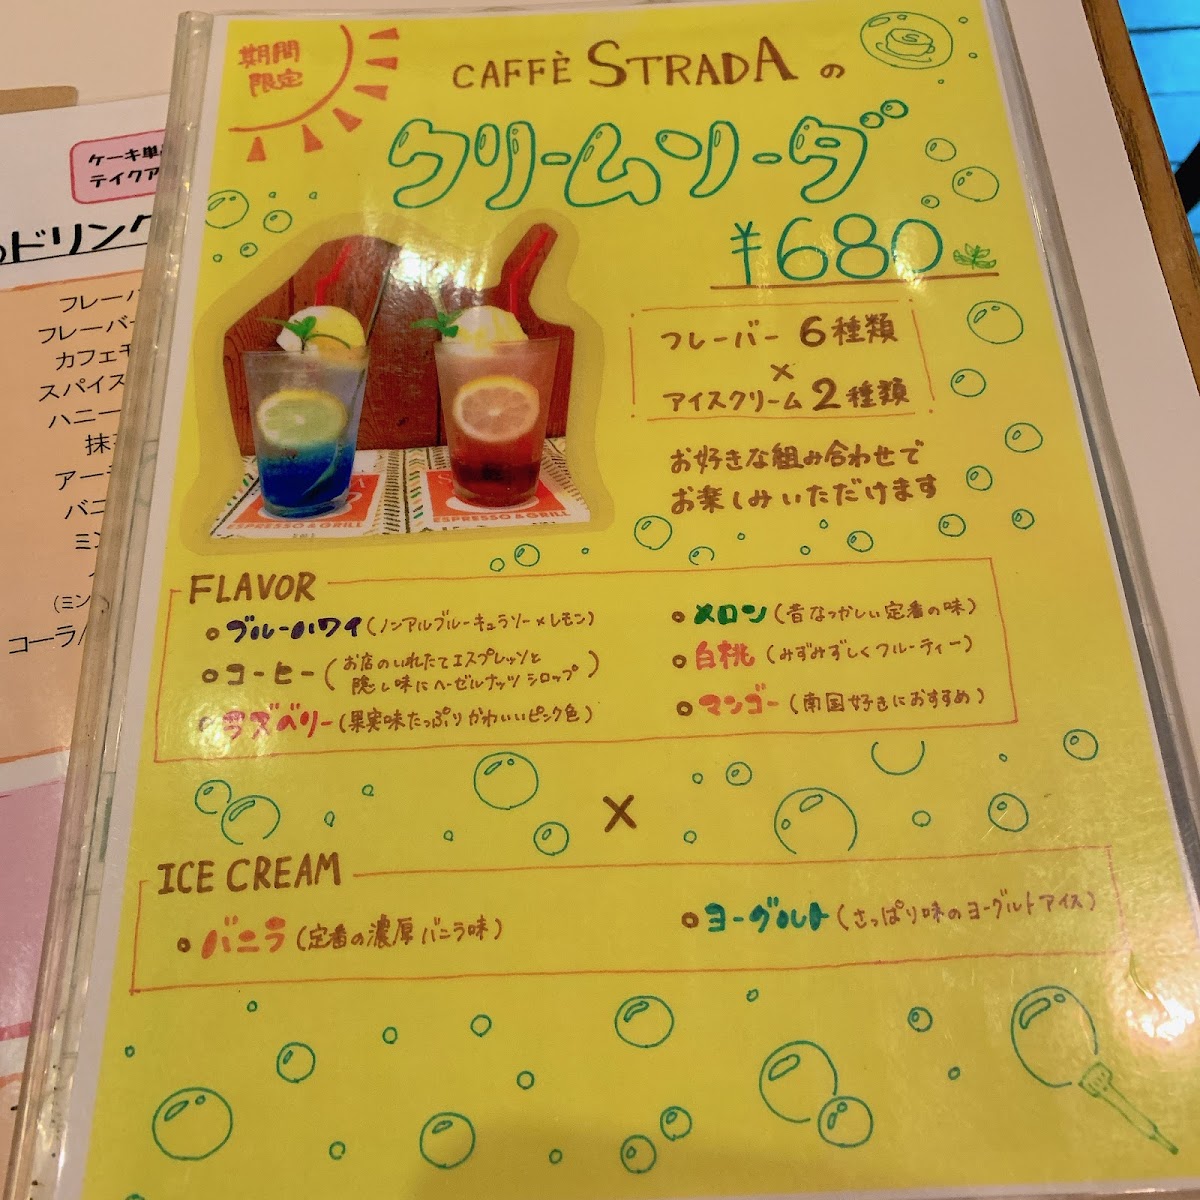 期間
限定
CAFFÈ STRADA の
クリームソーダ
¥680
フレーバー 6種類
×
アイスクリーム 2種類
お好きな組み合わせで
お楽しみいただけます
ESPRESSO & GRILL
ESPRESSO & GRILL
FLAVOR
ブルーハワイ (ノンアルブルーキュラソー×レモン)
コーヒー (お店のいれたてエスプレッソと
隠し味にヘーゼルナッツシロップ)
ラズベリー (果実味たっぷりかわいいピンク色)
メロン (昔なつかしい定番の味)
白桃 (みずみずしくフルーティー)
マンゴー (南国好きにおすすめ)
×
ICE CREAM
バニラ (定番の濃厚バニラ味)
ヨーグルト (さっぱり味のヨーグルトアイス)
ケーキ単
テイクア
ドリンク
フレーバ
フレーバー
カフェモ
スパイス
ハニー
抹
アー
バニ
ミン
(ミン
コーラ/